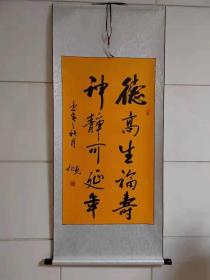 德高生福寿
神静可延年